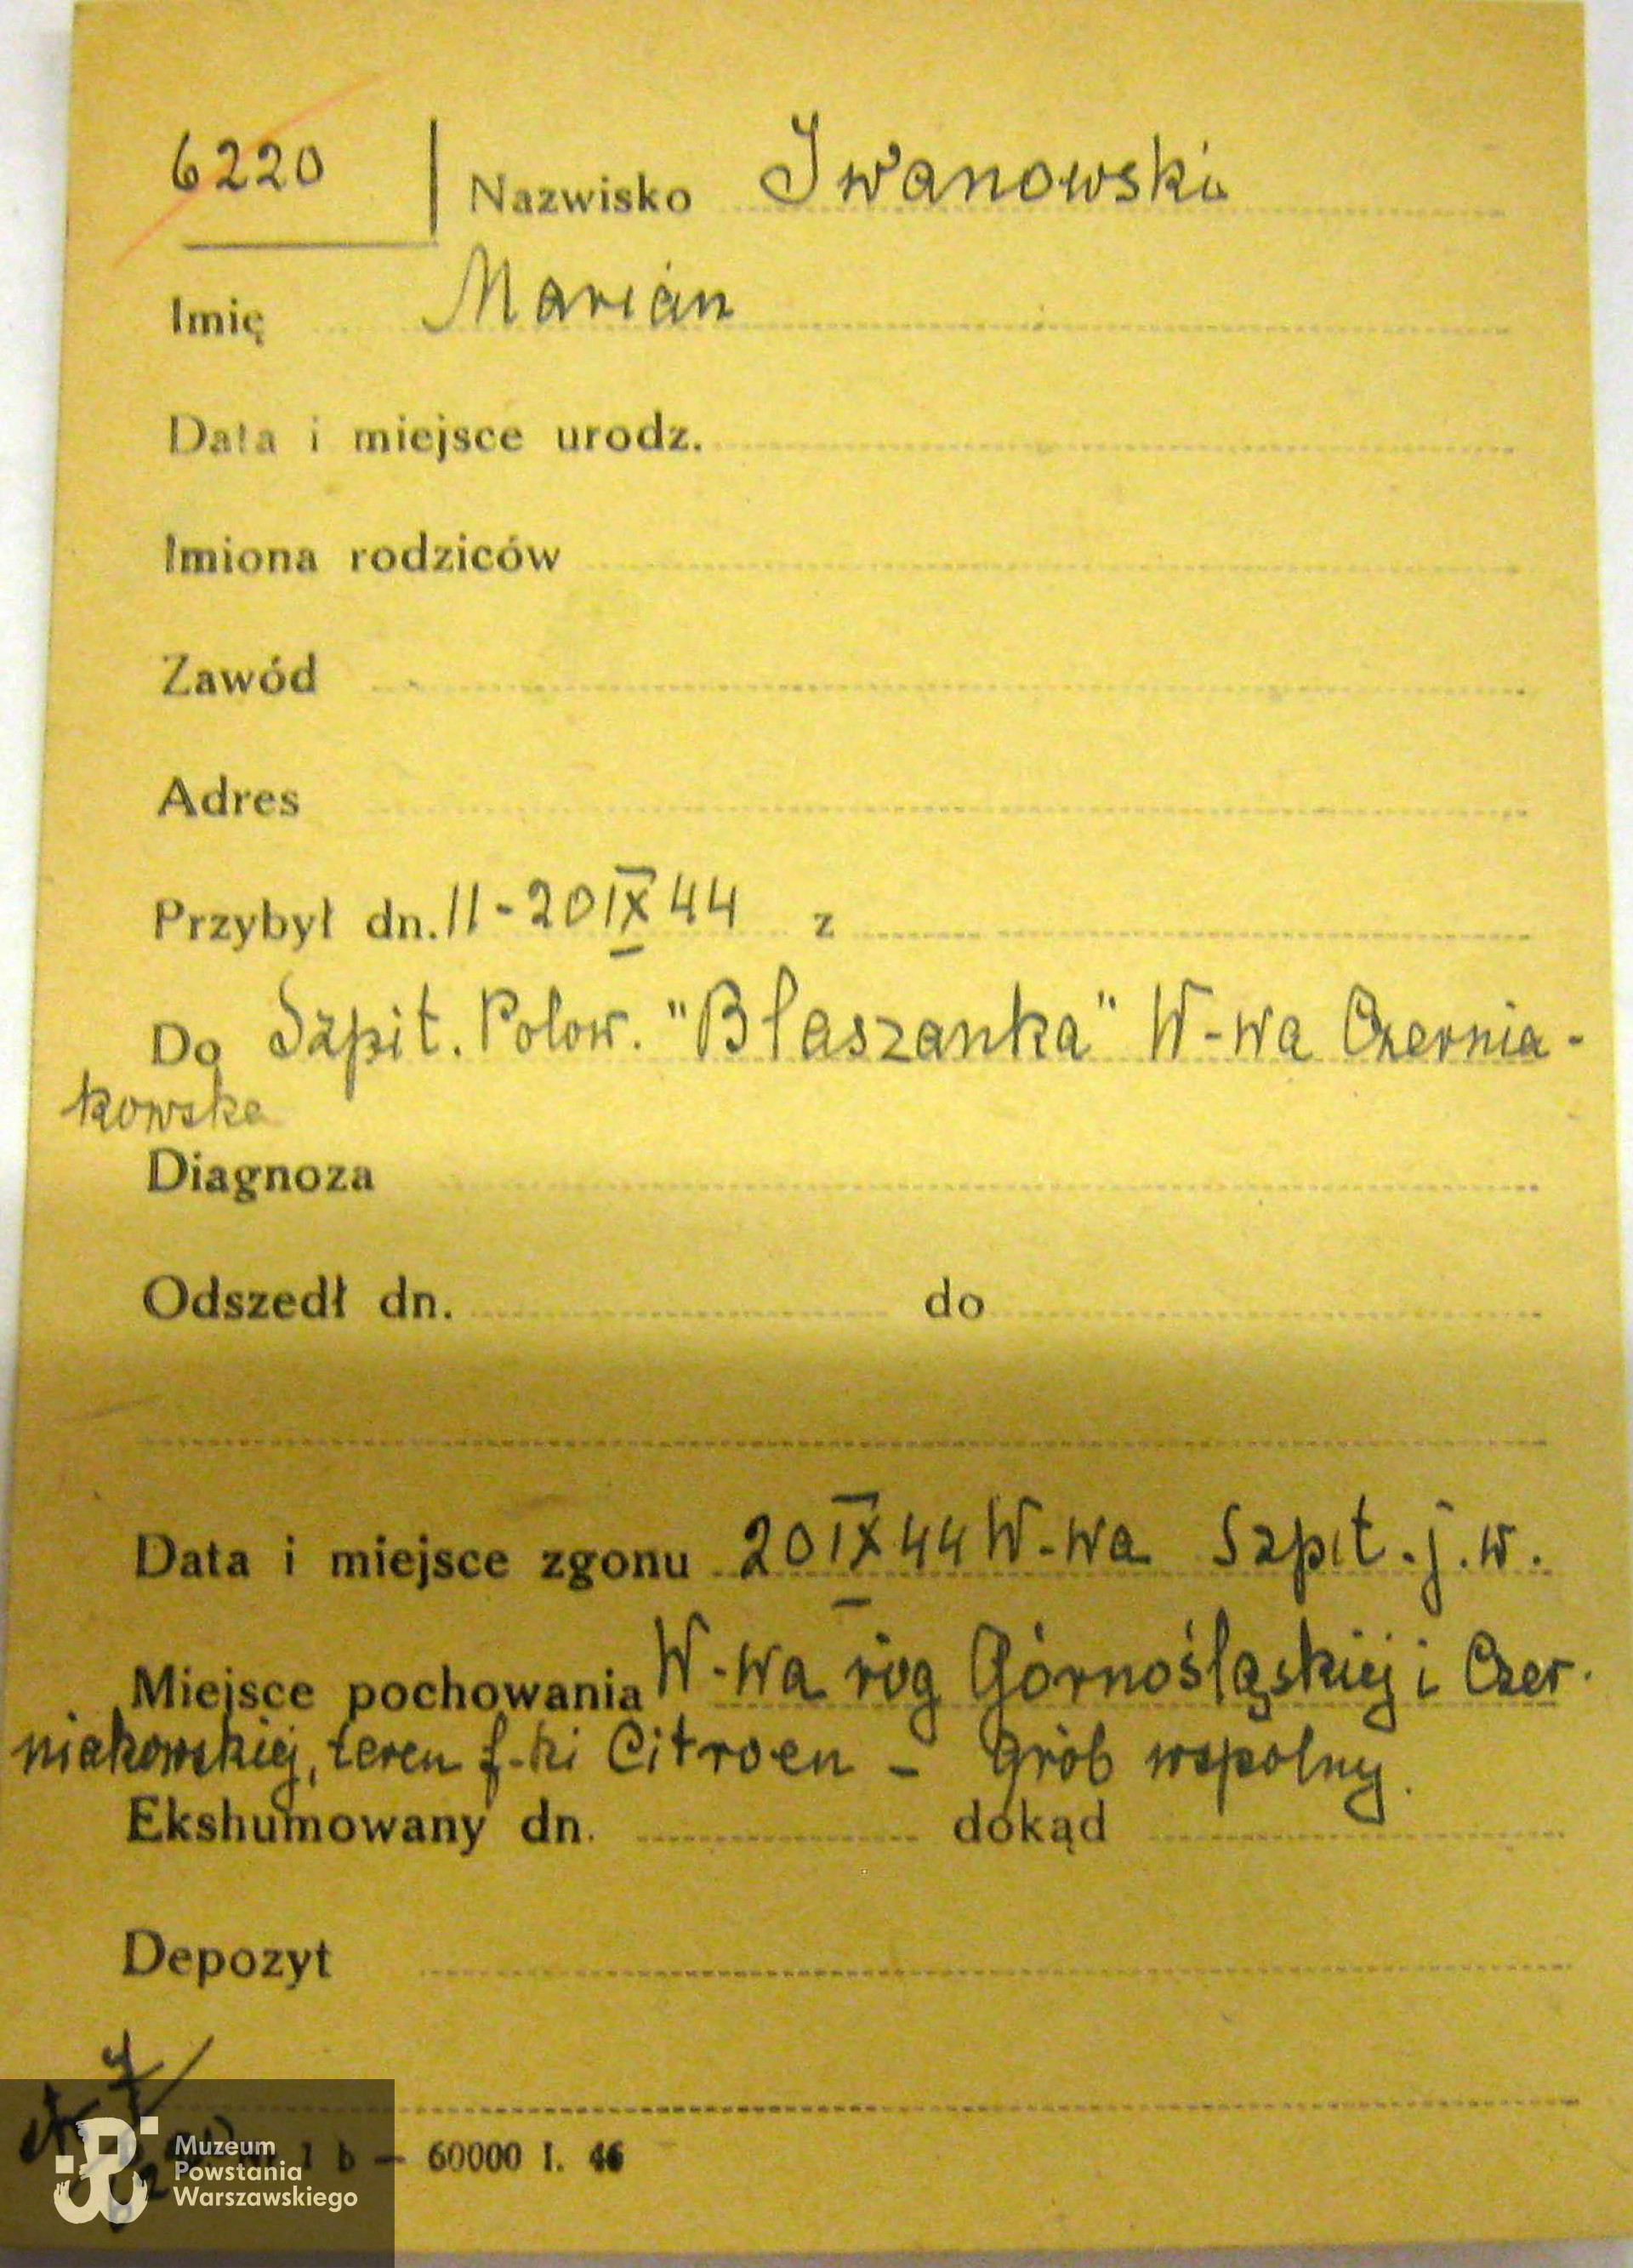 6220 Nazwisko Iwanowski
Imię Marian
Data i miejsce urodz.
Imiona rodziców
Zawód
Adres
Przybył dn. 11-20 IX 44 z
Do Szpit. Polow. "Blaszanka" W-wa Czernia-
kowska
Diagnoza
Odszedł dn. do
Data i miejsce zgonu 20 IX 44 W-wa Szpit. j. w.
Miejsce pochowania W-wa róg Górnośląskiej i Czer-
niakowskiej, teren f-ki Citroen - Grób wspólny.
Ekshumowany dn. dokąd
Depozyt
1 b — 60000 I. 46
Muzeum
Powstania
Warszawskiego